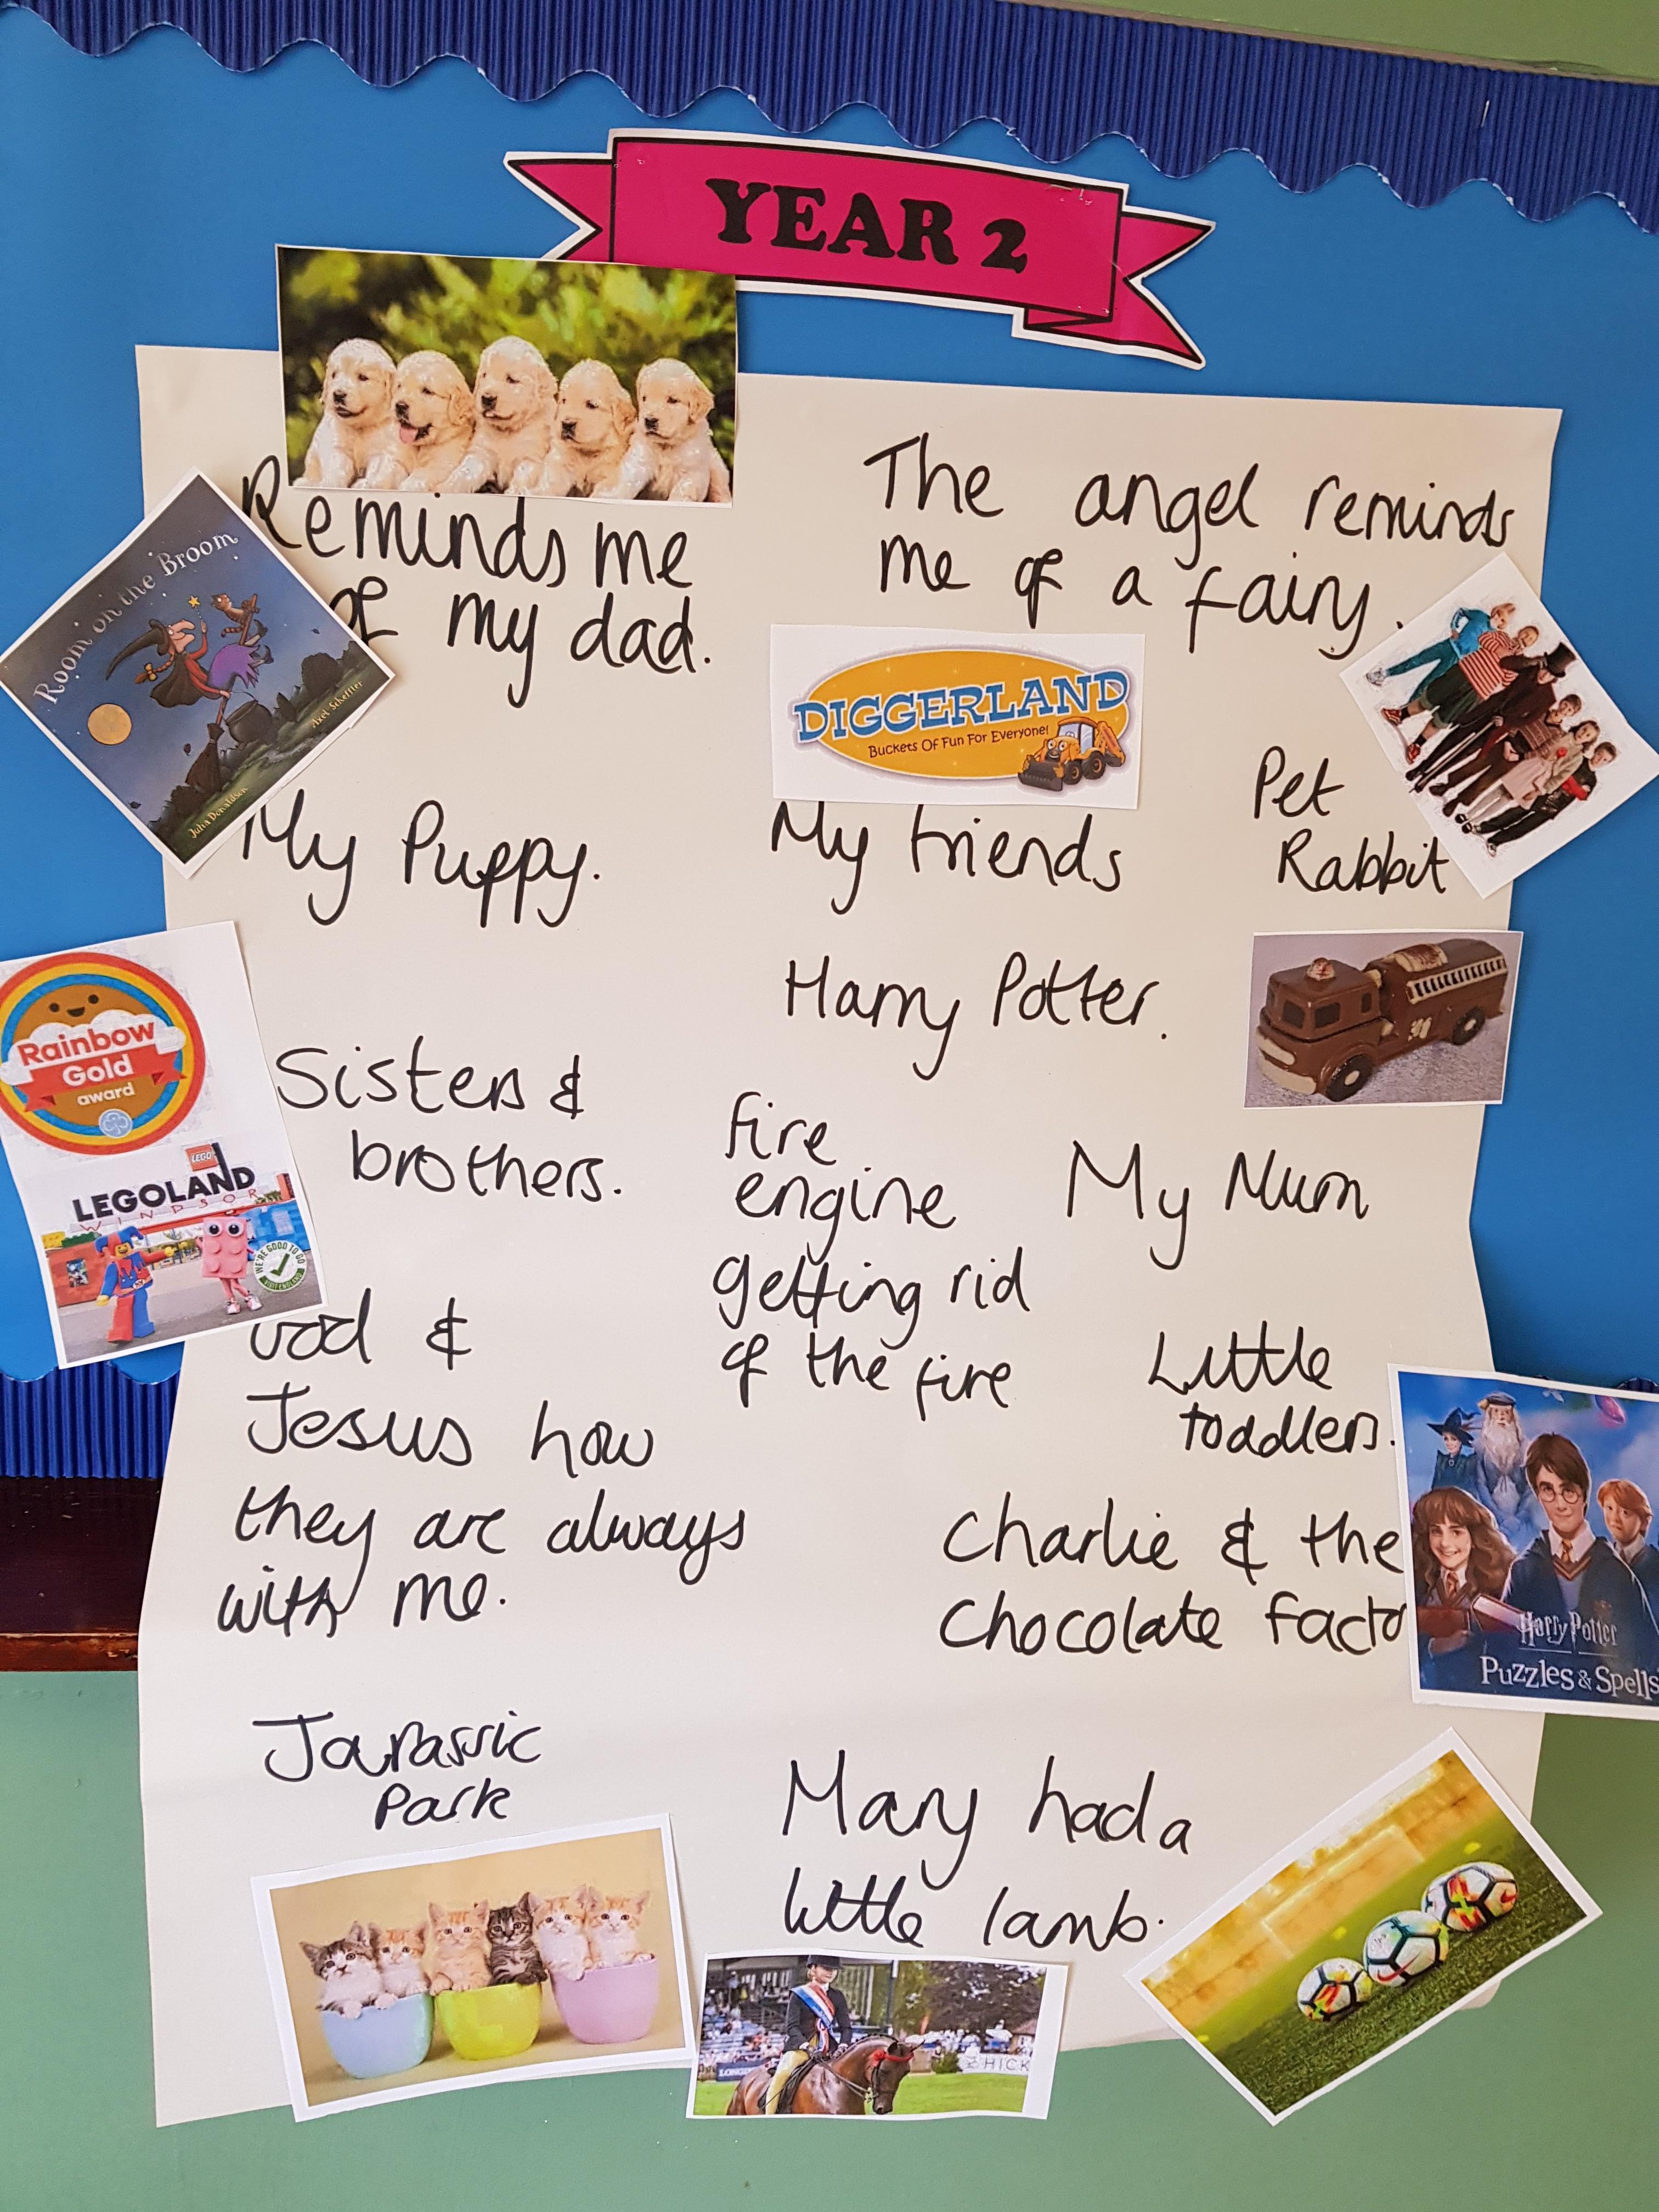 YEAR 2
Reminds me
of my dad.
The angel reminds
me of a fairy.
Room on the Broom
Axel Scheffler
Julia Donaldson
DIGGERLAND
Buckets Of Fun For Everyone!
My Puppy.
My friends
Pet
Rabbit
Harry Potter.
Rainbow
Gold
award
LEGO
LEGOLAND
WINDSOR
WE'RE GOOD TO GO
VISIT ENGLAND
Sisters &
brothers.
fire
engine
getting rid
of the fire
My Mum
God &
Jesus how
they are always
with me.
Little
toddlers.
Charlie & the
Chocolate facto
Harry Potter
Puzzles & Spells
Jurassic
Park
Mary had a
little lamb.
LONG
HICK